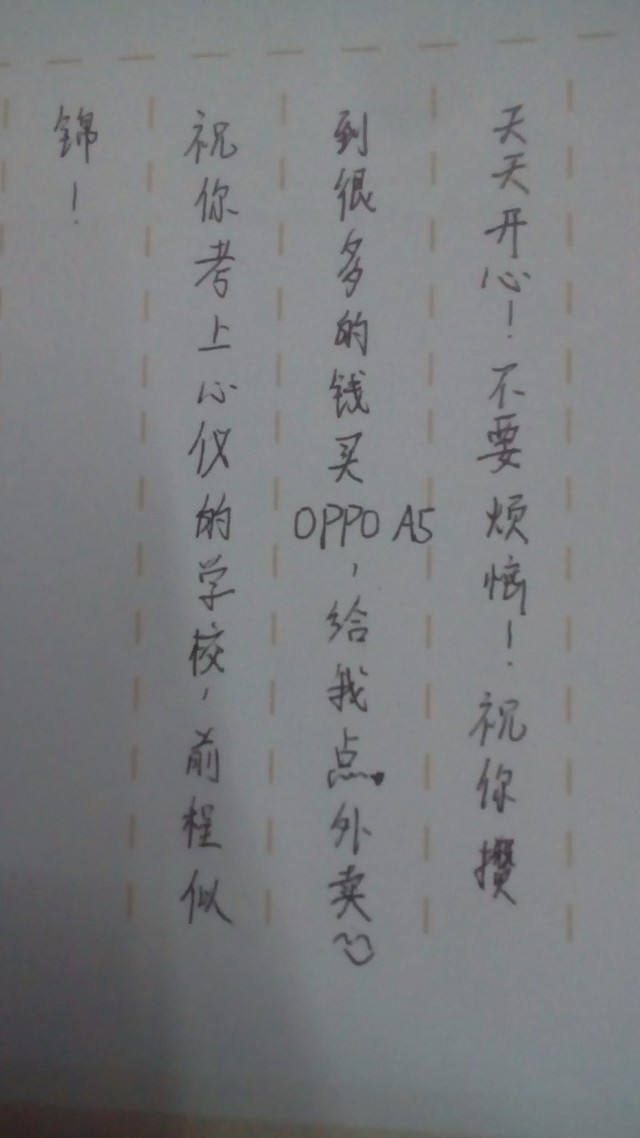 天天开心！不要烦恼！祝你攒
到很多的钱买OPPO A5，给我点外卖
祝你考上心仪的学校，前程似
锦！